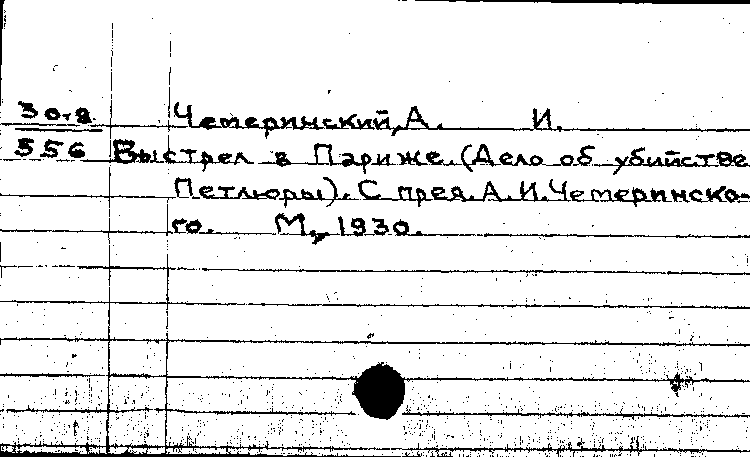 30-8 Четеринский, А. И.
556 Выстрел в Париже. (Дело об убийстве
Петлюры). С пред. А. И. Четеринско-
го. М., 1930.